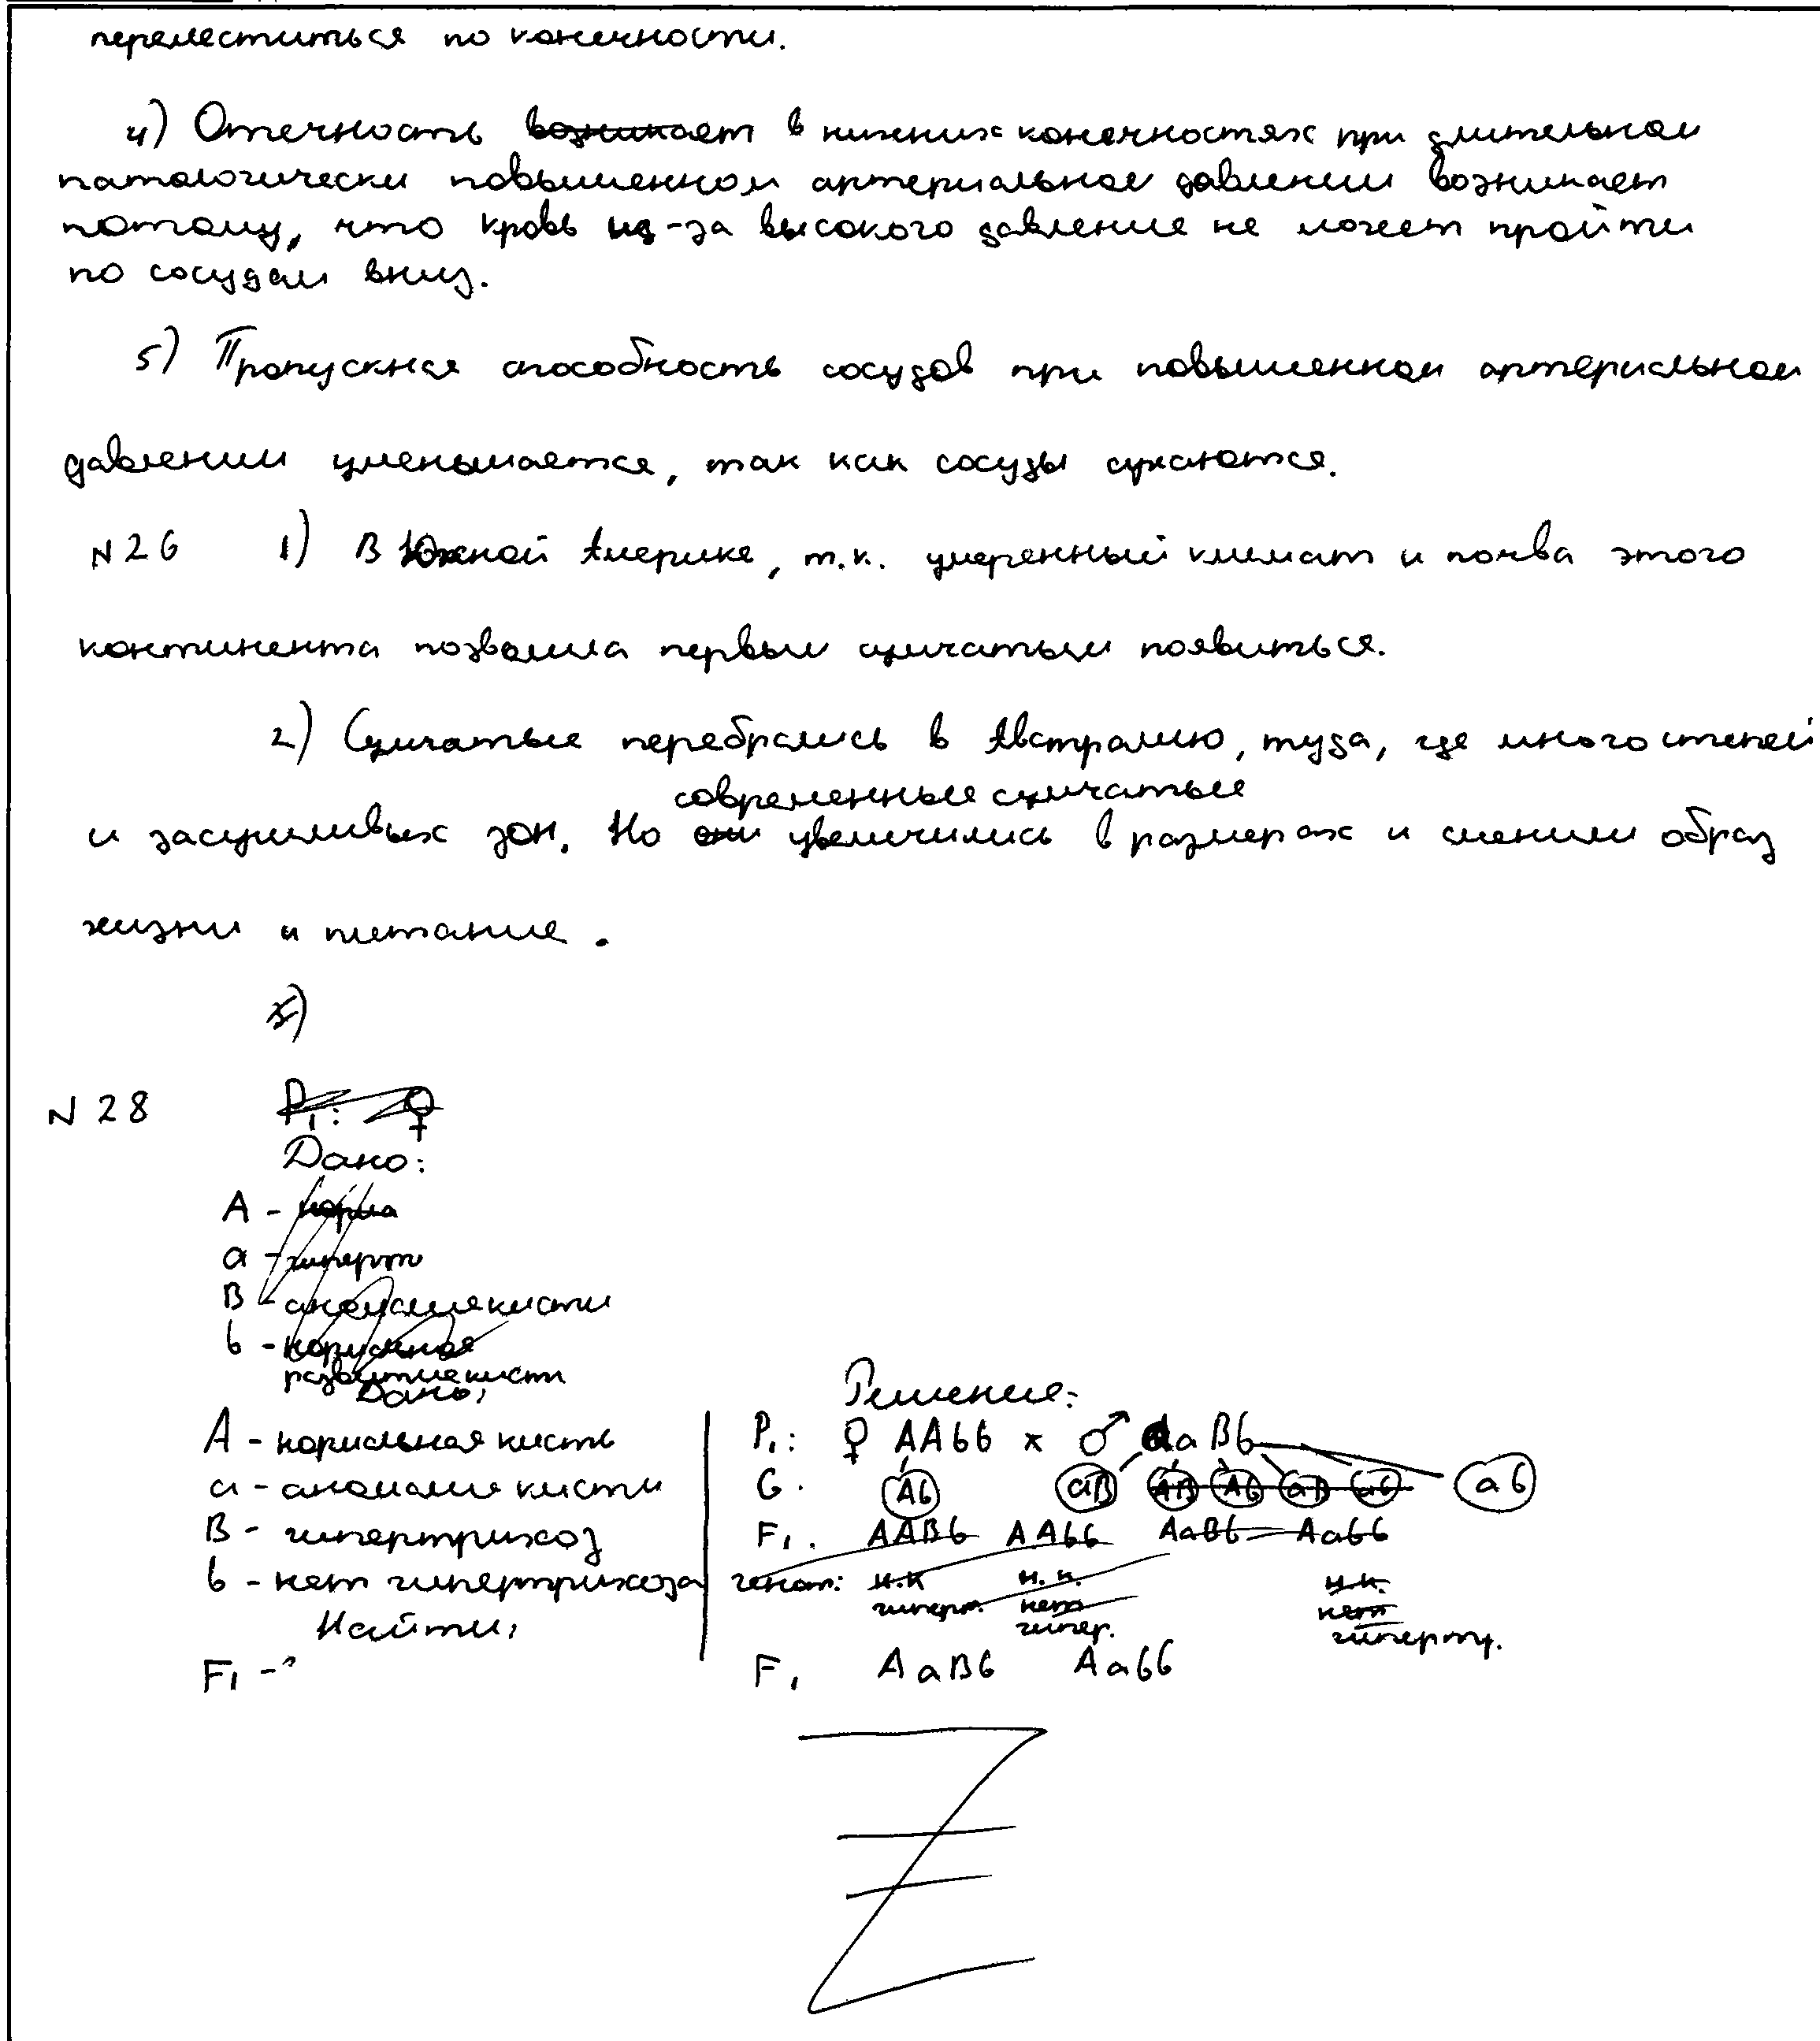 переместиться по конечности.
4) Отечность возникает в нижних конечностях при длительном
патологически повышенном артериальное давлении возникает
потому, что кровь из-за высокого давление не может пройти
по сосудам вниз.
5) Пропускная способность сосудов при повышенном артериальном
давлении уменьшается, так как сосуды сужаются.
N26 1) В Южной Америке, т.к. умеренный климат и почва этого
континента позволила первым сумчатым появиться.
2) Сумчатые перебрались в Австралию, туда, где много степей
современные сумчатые
и засушливых зон. Но они увеличились в размерах и сменили образ
жизни и питание.
3)
N 28 P₁: ♀
Дано:
A - норма
a - гиперт
B - аномалия кисти
b - нормальное
развитие кисти
Дано: Решение:
A - нормальная кисть P₁: ♀ AAbb x ♂ AaBb
a - аномалия кисти G. Ab aB AB Ab aB ab ab
B - гипертрихоз F₁. AABb AAbb AaBb Aabb
b - нет гипертрихоза генот: н.к н.к. н.к.
гиперт. нет нет
гипер. гиперт.
Найти:
F₁ -? F₁ AaBb Aabb